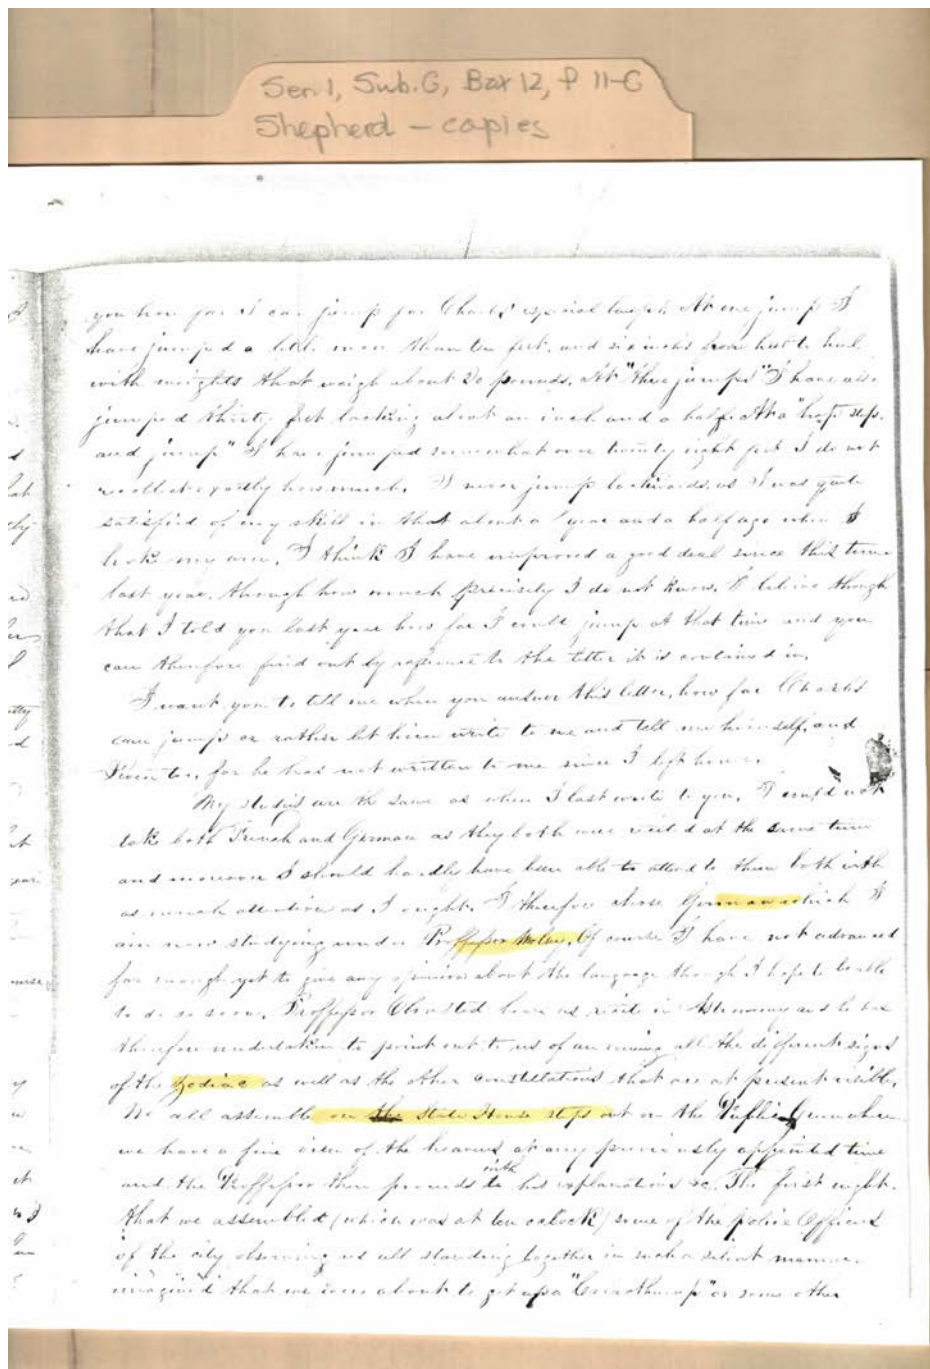 Ser. 1, Sub. G, Box 12, f 11-G
Shepherd - copies
you how far I can jump for Charls' especial benefit. At one jump I
have jumped a little more than ten feet, and six inches from heel to heel
with weights that weigh about 20 pounds. At "three jumps" I have also
jumped thirty feet lacking about an inch and a half. At a "hop step
and jump" I have jumped somewhat over twenty eight feet I do not
recollect exactly how much. I never jump backwards as I was quite
satisfied of my skill in that about a year and a half ago when I
broke my arm. I think I have improved a good deal since this time
last year, though how much precisely I do not know. I believe though
that I told you last year how far I could jump at that time and you
can therefore find out by reference to the letter it is contained in.
I want you to tell me when you answer this letter, how far Charls
can jump or rather let him write to me and tell me himself, and
too, for he has not written to me since I left home.
My studies are the same as when I last wrote to you. I could not
take both French and German as they both were recited at the same time
and moreover I should hardly have been able to attend to them both with
as much attention as I ought. I therefore chose German which I
am now studying under Proffessor Of course I have not advanced
far enough yet to give any opinion about the language though I hope to be able
to do so soon. Proffessor Olmsted hears us recite in Astronomy and he has
therefore undertaken to point out to us of an evening all the different signs
of the Zodiac as well as the other constellations that are at present visible.
We all assemble on the State House steps out on the Public Green where
we have a fine view of the heavens at any previously appointed time
and the Proffessor then proceeds to with his explanations &c. The first night
that we assembled (which was at ten oclock) some of the police Officers
of the city observing us all standing together in such a silent manner
imagined that we were about to get up a or some other